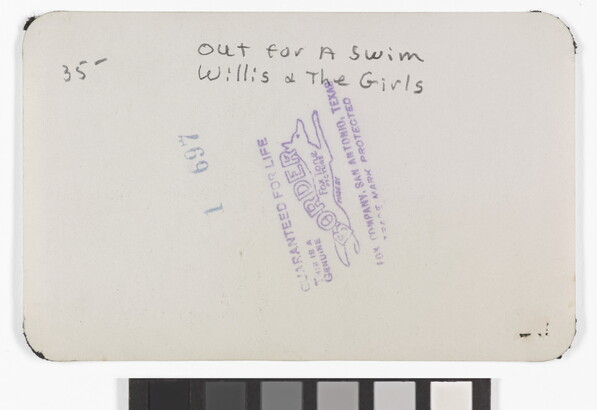 Out for A Swim
35- Willis & The Girls
1 697
GUARANTEED FOR LIFE
THIS IS A
GENUINE
BORDER
FOX COMPANY, SAN ANTONIO, TEXAS
TRADE MARK PROTECTED